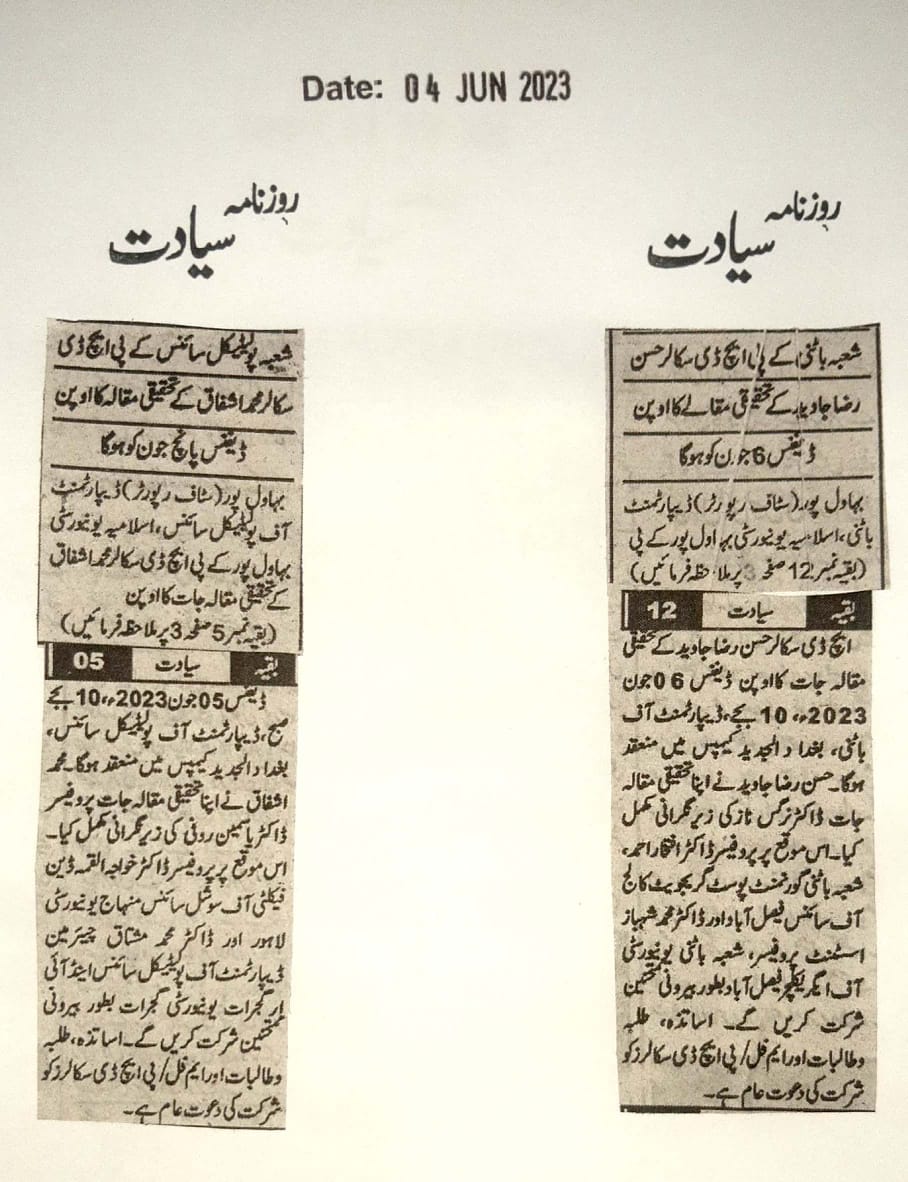 Date: 04 JUN 2023
روزنامہ
سیادت
شعبہ باٹنی کے پی ایچ ڈی سکالر حسن
رضا جاوید کے تحقیقی مقالے کا اوپن
ڈیفنس 6 جون کو ہوگا
بہاول پور (سٹاف رپورٹر) ڈیپارٹمنٹ
باٹنی، اسلامیہ یونیورسٹی بہاول پور کے پی
(بقیہ نمبر 12 صفحہ 3 پر ملاحظہ فرمائیں)
بقیہ سیادت 12
ایچ ڈی سکالر حسن رضا جاوید کے تحقیقی
مقالہ جات کا اوپن ڈیفنس 06 جون
2023ء، 10 بجے، ڈیپارٹمنٹ آف
باٹنی، بغداد الجدید کیمپس میں منعقد
ہوگا۔ حسن رضا جاوید نے اپنا تحقیقی مقالہ
جات ڈاکٹر نرگس ناز کی زیر نگرانی مکمل
کیا۔ اس موقع پر پروفیسر ڈاکٹر افتخار احمد،
شعبہ باٹنی گورنمنٹ پوسٹ گریجویٹ کالج
آف سائنس فیصل آباد اور ڈاکٹر محمد شہباز
اسسٹنٹ پروفیسر، شعبہ باٹنی یونیورسٹی
آف ایگریکلچر فیصل آباد بطور بیرونی ممتحین
شرکت کریں گے۔ اساتذہ، طلبہ
و طالبات اور ایم فل/ پی ایچ ڈی سکالرز کو
شرکت کی دعوت عام ہے۔
روزنامہ
سیادت
شعبہ پولیٹیکل سائنس کے پی ایچ ڈی
سکالر محمد اشفاق کے تحقیقی مقالہ کا اوپن
ڈیفنس پانچ جون کو ہوگا
بہاول پور (سٹاف رپورٹر) ڈیپارٹمنٹ
آف پولیٹیکل سائنس، اسلامیہ یونیورسٹی
بہاول پور کے پی ایچ ڈی سکالر محمد اشفاق
کے تحقیقی مقالہ جات کا اوپن
(بقیہ نمبر 5 صفحہ 3 پر ملاحظہ فرمائیں)
بقیہ سیادت 05
ڈیفنس 05 جون 2023ء، 10 بجے
صبح، ڈیپارٹمنٹ آف پولیٹیکل سائنس،
بغداد الجدید کیمپس میں منعقد ہوگا۔ محمد
اشفاق نے اپنا تحقیقی مقالہ جات پروفیسر
ڈاکٹر یاسمین روفی کی زیر نگرانی مکمل کیا۔
اس موقع پر پروفیسر ڈاکٹر خواجہ القمہ ڈین
فیکلٹی آف سوشل سائنس منہاج یونیورسٹی
لاہور اور ڈاکٹر محمد مشتاق چیئرمین
ڈیپارٹمنٹ آف پولیٹیکل سائنس اینڈ آئی
ار گجرات یونیورسٹی گجرات بطور بیرونی
ممتحین شرکت کریں گے۔ اساتذہ، طلبہ
و طالبات اور ایم فل/ پی ایچ ڈی سکالرز کو
شرکت کی دعوت عام ہے۔